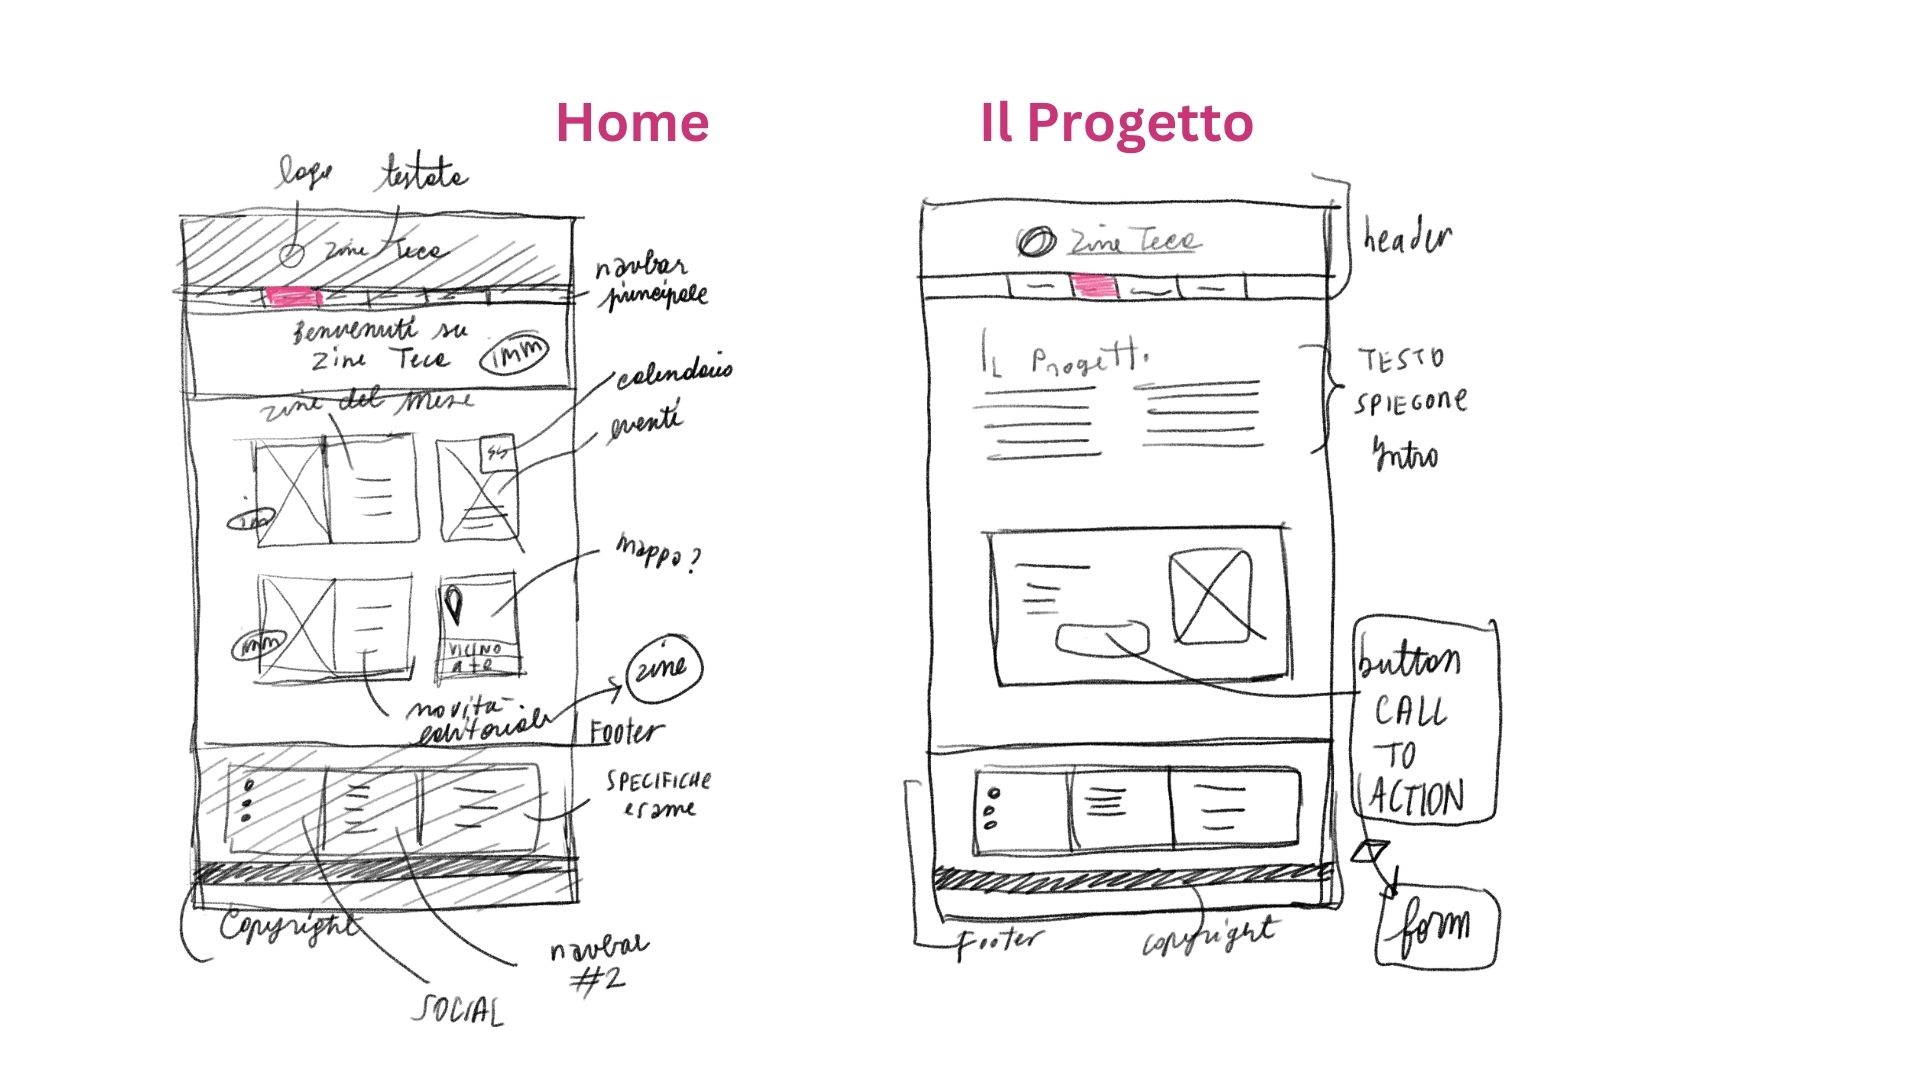 Home
logo
testata
Zine Teca
navbar
principale
Benvenuti su
Zine Teca
imm
calendario
zine del mese
eventi
im
mappa?
imm
VICINO
a te
zine
novità
editoriale
Footer
SPECIFICHE
esame
Copyright
navbar
#2
SOCIAL
Il Progetto
header
Zine Teca
IL Progetto
TESTO
SPIEGONE
Intro
button
CALL
TO
ACTION
form
Footer
copyright